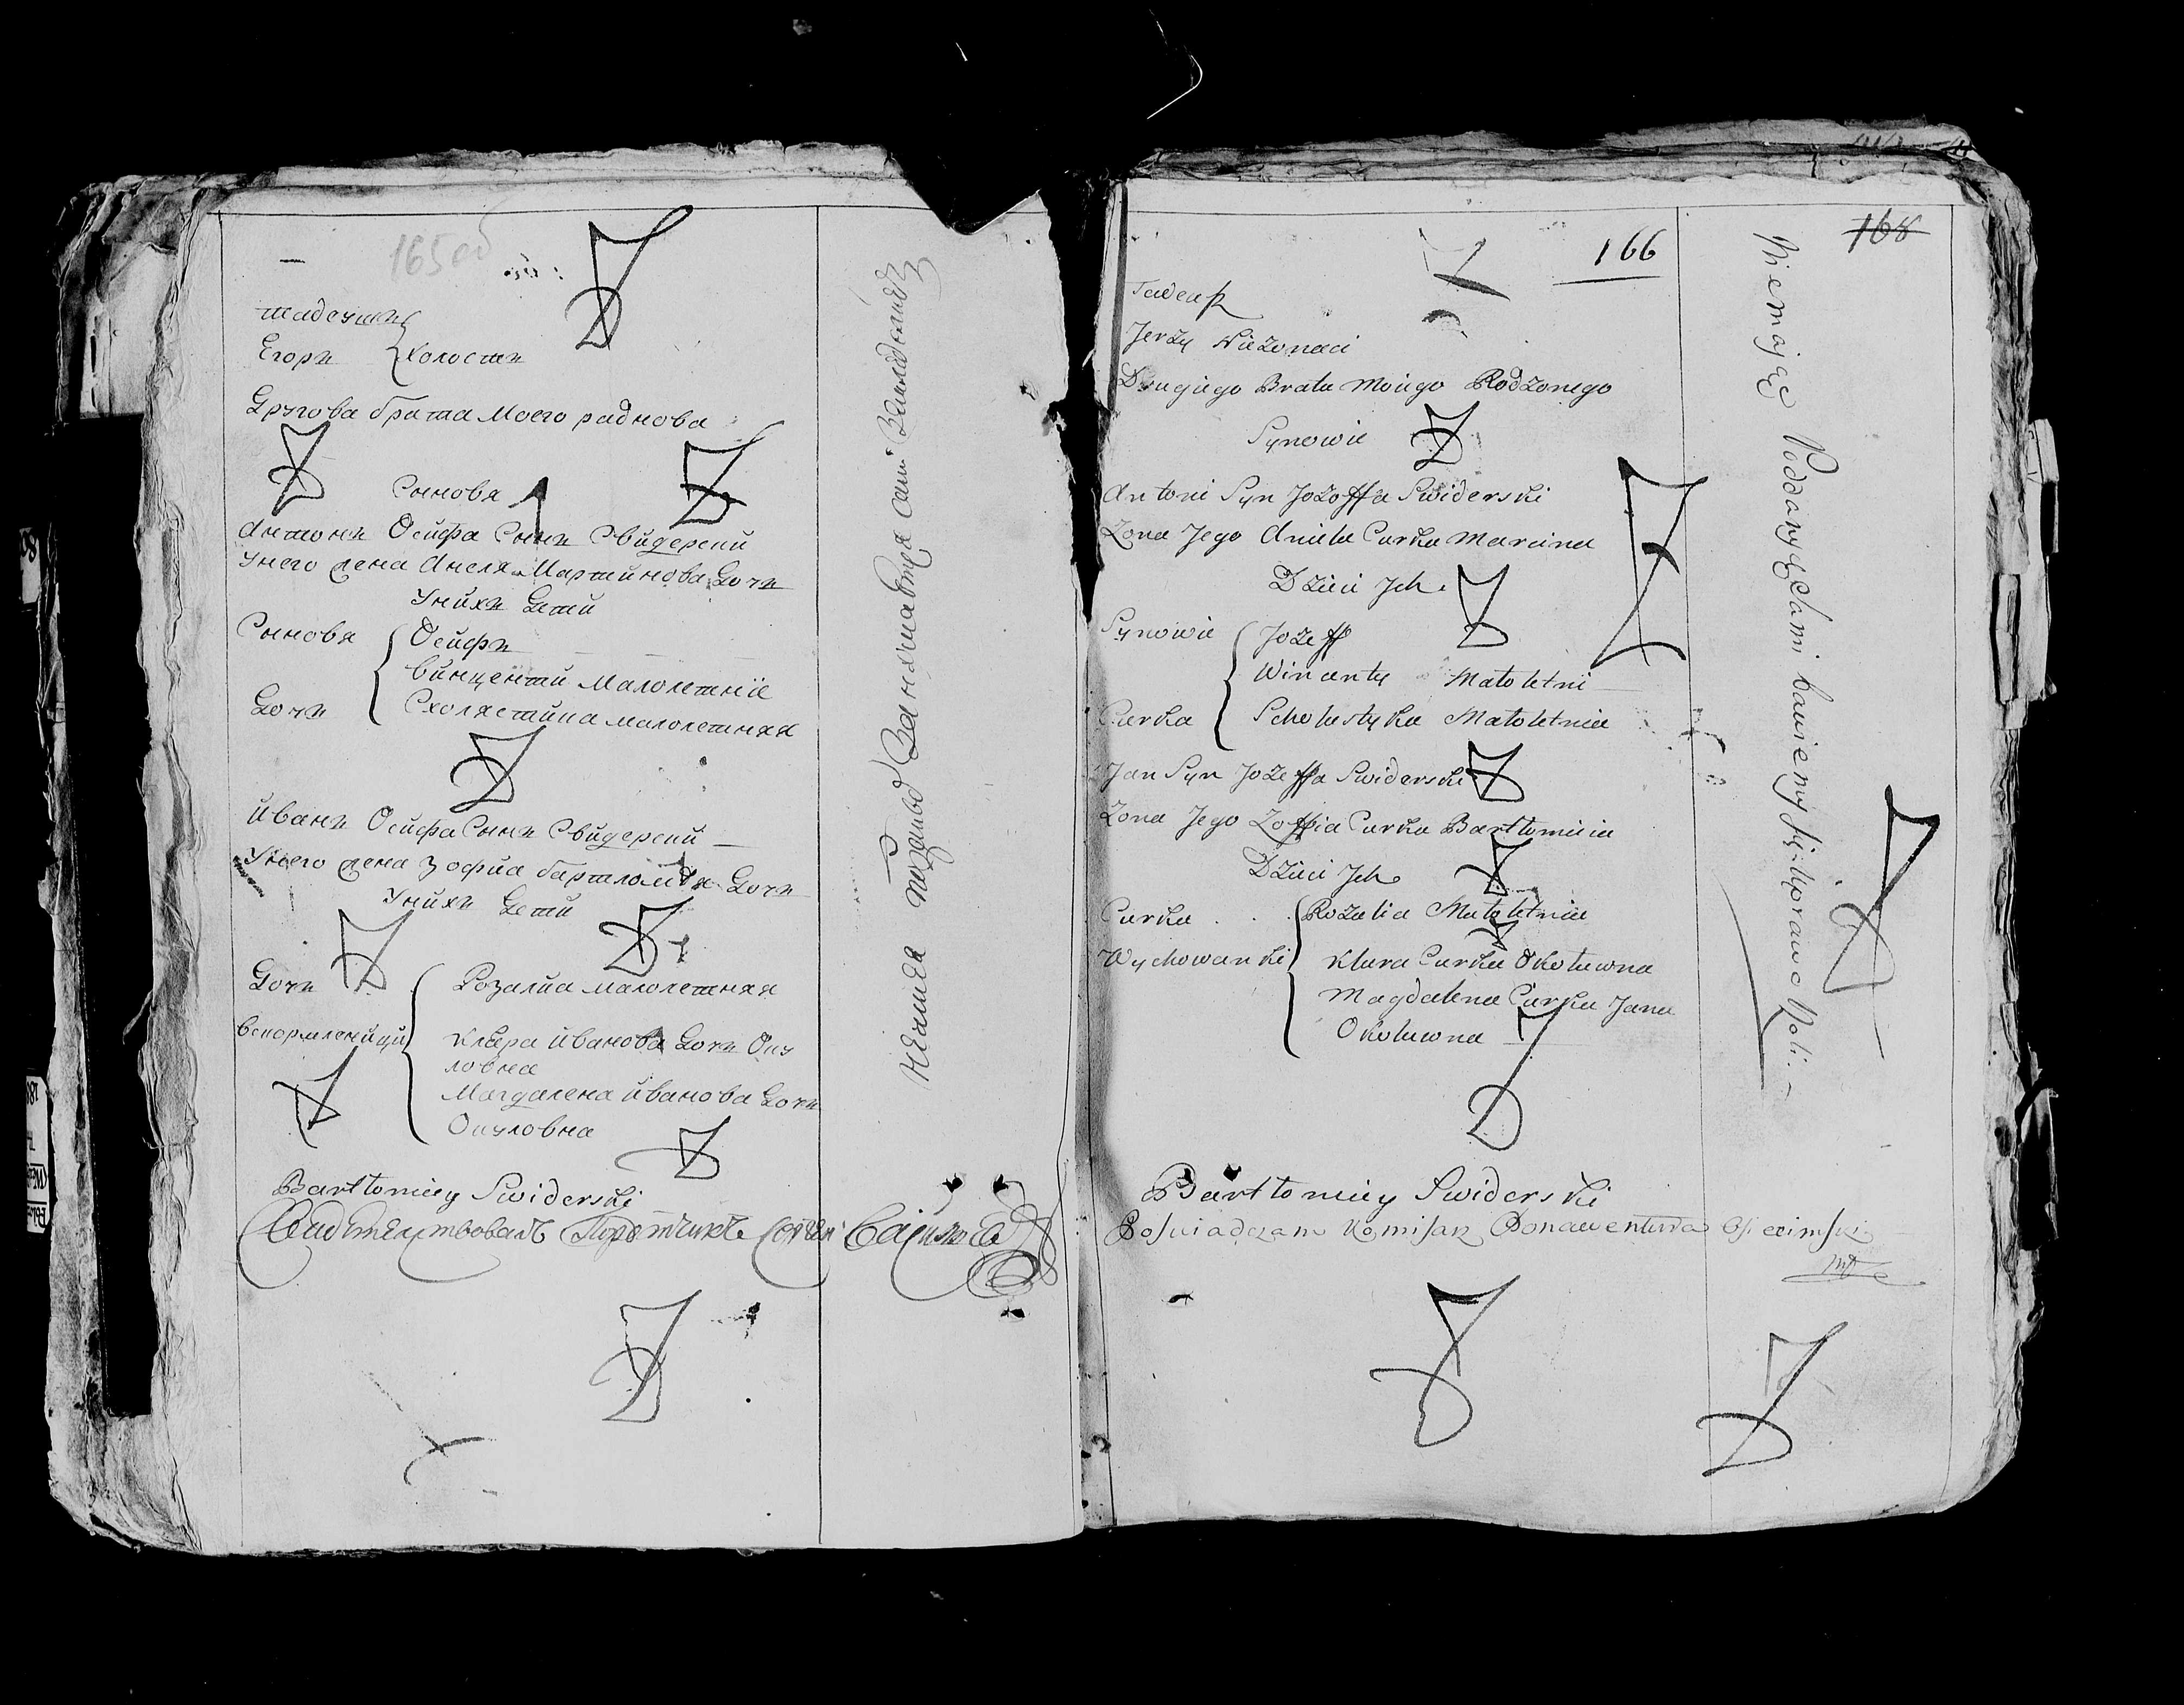 165 об
тадеушъ
Егоръ холости
Другова брата Моего раднова
Сыновя
Антонъ Осифа Сынъ Свидерски
Унего жена Анеля Мартинова Дочъ
Унихъ Дети
Сыновя Осифъ
Винцентий Малолетние
Дочъ Схолястика малолетняя
Иванъ Осифа Сынъ Свидерски
Унего жена Зофиа Дочъ
Унихъ Дети
Дочъ Розалиа малолетняя
Клара Иванова Дочъ Оку
ловна
Магдалена Иванова Дочъ
Окуловна
Bartłomiey Swiderski
Свидетельствовалъ
166
168
Tadeusz
Jerzy Nieżonaci
Drugiego Brata Moiego Rodzonego
Synowie
Antoni Syn Jozeffa Swiderski
Zona Jego Aniela Curka Marcina
Dzieci Jch
Synowie Jozeff
Wincenty Małoletni
Curka Scholastyka Małoletnia
Jan Syn Jozeffa Swiderski
Zona Jego Zoffia Curka Bartłomieia
Dzieci Jch
Curka Rozalia Małoletnia
Wychowanki Klara Curka Okołuwna
Magdalena Curka Jana
Okołuwna
Bartłomiey Swiderski
Poswiadczam Komisarz Bonawentura
mp
Niemając Poddanych sami bawiemy się Uprawo Roli